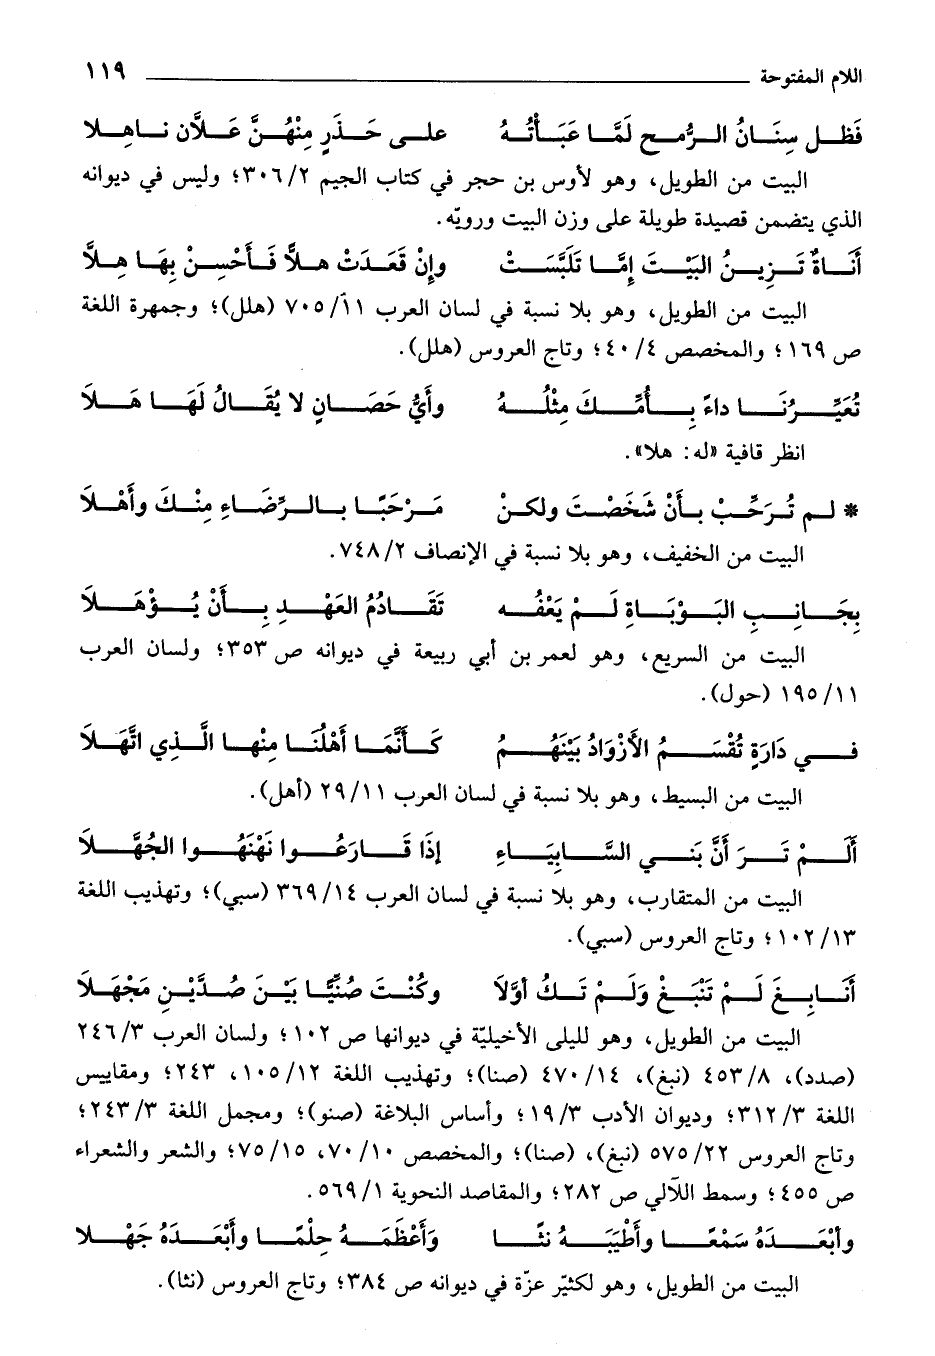 اللام المفتوحة ١١٩
فَظل سِنَانُ الرُّمح لَمَّا عَبَأتُهُ على حَذَرٍ مِنْهُنَّ عَلاَّن ناهِلا
البيت من الطويل، وهو لأوس بن حجر في كتاب الجيم ٣٠٦/٢؛ وليس في ديوانه
الذي يتضمن قصيدة طويلة على وزن البيت ورويّه.
أَنَاةٌ تَزِينُ البَيْتَ إمَّا تَلَبَّسَتْ وإنْ قَعَدَتْ هلاًّ فَأَحْسِنْ بِهَا هِلاًّ
البيت من الطويل، وهو بلا نسبة في لسان العرب ٧٠٥/١١ (هلل)؛ وجمهرة اللغة
ص ١٦٩؛ والمخصص ٤٠/٤؛ وتاج العروس (هلل).
تُعَيِّرُنَا داءً بِأُمِّكَ مِثْلُهُ وأَيُّ حَصَانٍ لا يُقَالُ لَهَا هَلاَ
انظر قافية «له: هلا».
* لم تُرَحِّبْ بأنْ شَخَصْتَ ولكنْ مَرْحَبًا بالرِّضَاءِ مِنْكَ وأهْلاَ
البيت من الخفيف، وهو بلا نسبة في الإنصاف ٧٤٨/٢.
بِجَانِبِ البَوْبَاةِ لَمْ يَعْفُه تَقَادُمُ العَهْدِ بِأَنْ يُؤْهَلاَ
البيت من السريع، وهو لعمر بن أبي ربيعة في ديوانه ص ٣٥٣؛ ولسان العرب
١٩٥/١١ (حول).
في دَارَةٍ تُقْسَمُ الأَزْوَادُ بَيْنَهُمُ كَأَنَّمَا أَهْلُنَا مِنْها الَّذِي اتَّهَلاَ
البيت من البسيط، وهو بلا نسبة في لسان العرب ٢٩/١١ (أهل).
أَلَمْ تَرَ أَنَّ بَنِي السَّابِيَاءِ إذَا قَارَعُوا نَهْنَهُوا الجُهَّلاَ
البيت من المتقارب، وهو بلا نسبة في لسان العرب ٣٦٩/١٤ (سبي)؛ وتهذيب اللغة
١٠٢/١٣؛ وتاج العروس (سبي).
أَنَابِغَ لَمْ تَنْبَغْ وَلَمْ تَكُ أوَّلاَ وكُنْتَ صُنَيًّا بَيْنَ صُدَّيْنِ مَجْهَلاَ
البيت من الطويل، وهو لليلى الأخيليّة في ديوانها ص ١٠٢؛ ولسان العرب ٢٤٦/٣
(صدد)، ٤٥٣/٨ (نبغ)، ٤٧٠/١٤ (صنا)؛ وتهذيب اللغة ١٠٥/١٢، ٢٤٣؛ ومقاييس
اللغة ٣١٢/٣؛ وديوان الأدب ١٩/٣؛ وأساس البلاغة (صنو)؛ ومجمل اللغة ٢٤٣/٣؛
وتاج العروس ٥٧٥/٢٢ (نبغ)، (صنا)؛ والمخصص ٧٠/١٠، ٧٥/١٥؛ والشعر والشعراء
ص ٤٥٥؛ وسمط اللآلي ص ٢٨٢؛ والمقاصد النحوية ٥٦٩/١.
وأبْعَدَهُ سَمْعًا وأَطْيَبَهُ نثًا وَأَعْظَمَهُ حِلْمًا وأَبْعَدَهُ جَهْلا
البيت من الطويل، وهو لكثيّر عزّة في ديوانه ص ٣٨٤؛ وتاج العروس (نثا).